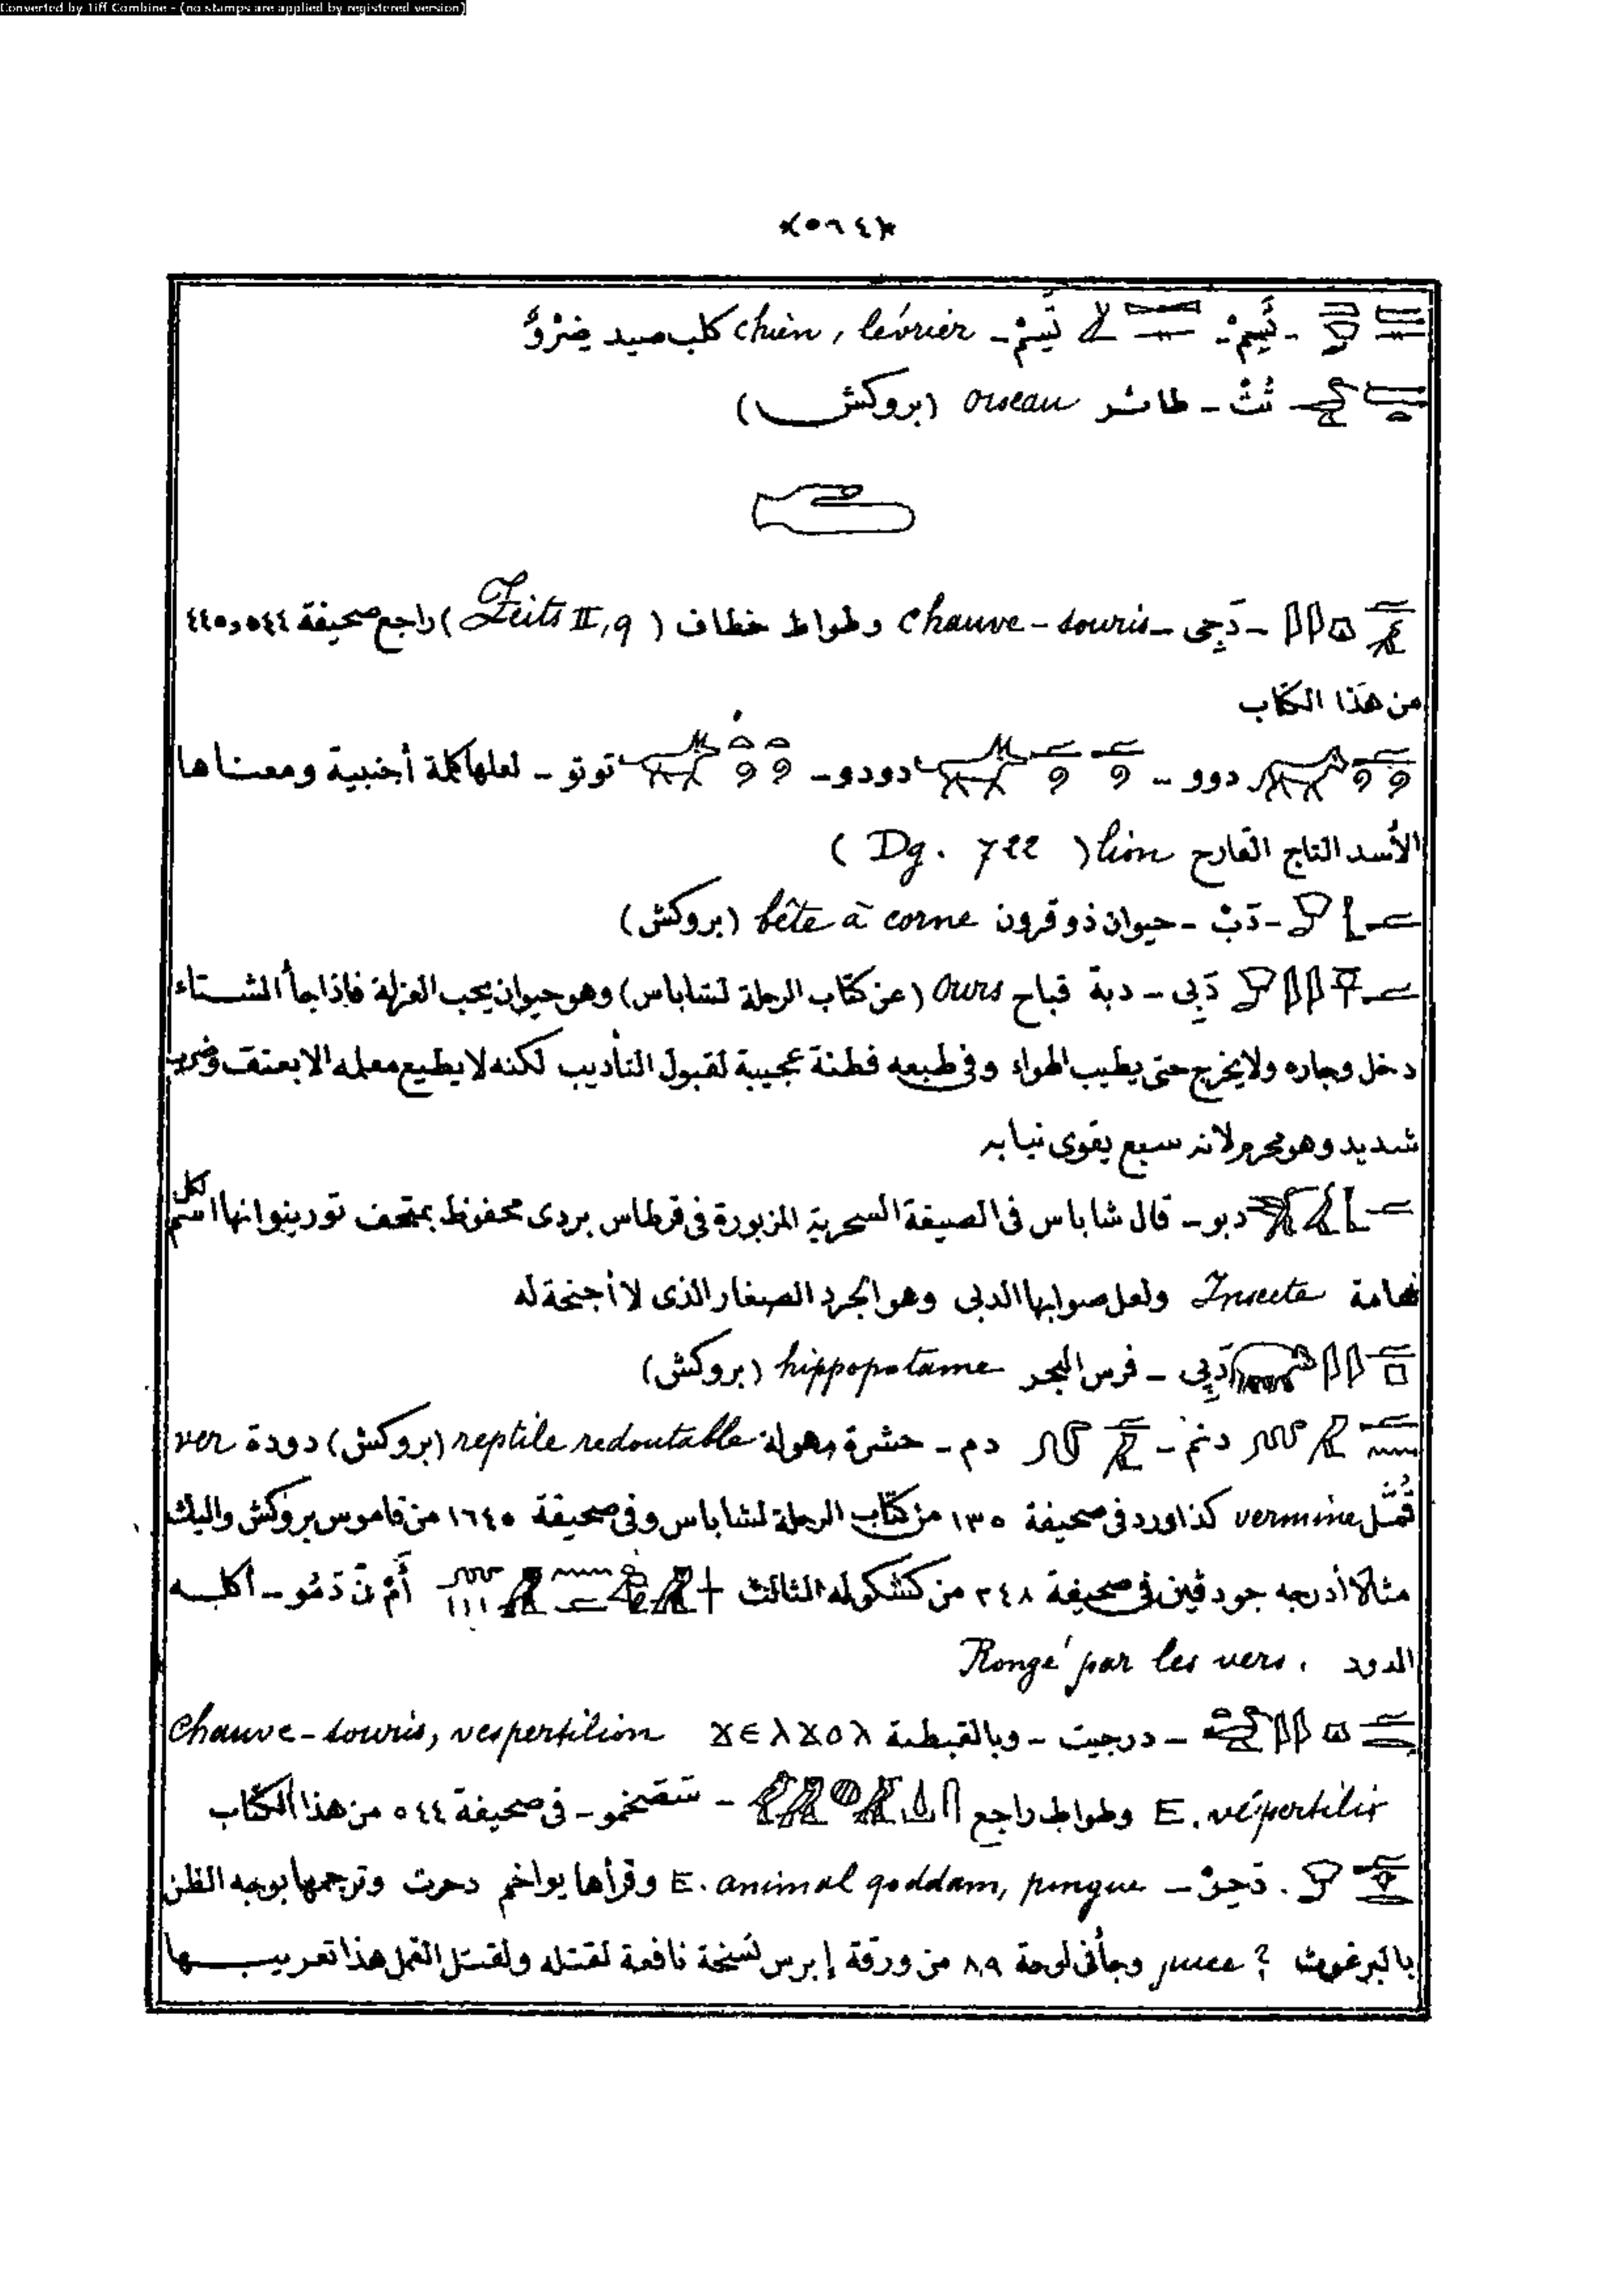 Converted by Tiff Combine - (no stamps are applied by registered version)
(٥٦٤)
- تَسِمْ - تَسِمْ - chien, lévrier كلب صيد ضِرْوٌ
تُتْ - طائر oiseau (بروكش)
- دَچِى - chauve-souris وطواط خطاف (Zeits II, 9) راجع صحيفة ٥٤٤ و ٤٤٥
من هذا الكتاب
دوو - دودو - توتو - لعلها كلمة أجنبية ومعناها
الأسد التاج القارح lion (Dg. 722)
- دَبْ - حيوان ذو قرون bête à corne (بروكش)
دَبِى - دبة قباح ours (عن كتاب الرحلة لشاباس) وهو حيوان يحب العزلة فإذا جأ الشتاء
دخل وجاره ولا يخرج حتى يطيب الهواء وفى طبعه فطنة عجيبة لقبول التأديب لكنه لا يطيع معلمه الا بعنف وضرب
شديد وهو محرم لانه سبع يقوى نيابه
دبو - قال شاباس فى الصيغة السحرية المزبورة فى قرطاس بردى محفوظ بمتحف تورينو انها اسم لكل
هامة Insecte ولعل صوابها الدبى وهو الجرد الصغار الذى لا أجنحة له
دَپِى - فرس البحر hippopotame (بروكش)
دنم - دم - حشرة مهولة reptile redoutable (بروكش) دودة ver
قُمَّل vermine كذا ورد فى صحيفة ١٣٥ من كتاب الرحلة لشاباس وفى صحيفة ١٦٤٥ من قاموس بروكش واليك
مثالا أدرجه جودفين فى صحيفة ٢٤٨ من كشكوله الثالث أَمْ نْ دَمُو - أكله
الدود . Rongé par les vers
- درجيت - وبالقبطية ϪⲈⲖϪⲞⲖ chauve-souris, vespertilion
E. véspertilis وطواط راجع - سَقَخمو - فى صحيفة ٥٤٤ من هذا الكتاب
. دَحِرْ - E. animal qoddam, pungue وقرأها يواخم دحرت وترجمها بوجه الظن
بالبرغوث ? puce وجأ فى لوحة ٨٩ من ورقة إبرس نسخة نافعة لقتله ولقتل القمل هذا تعريبها